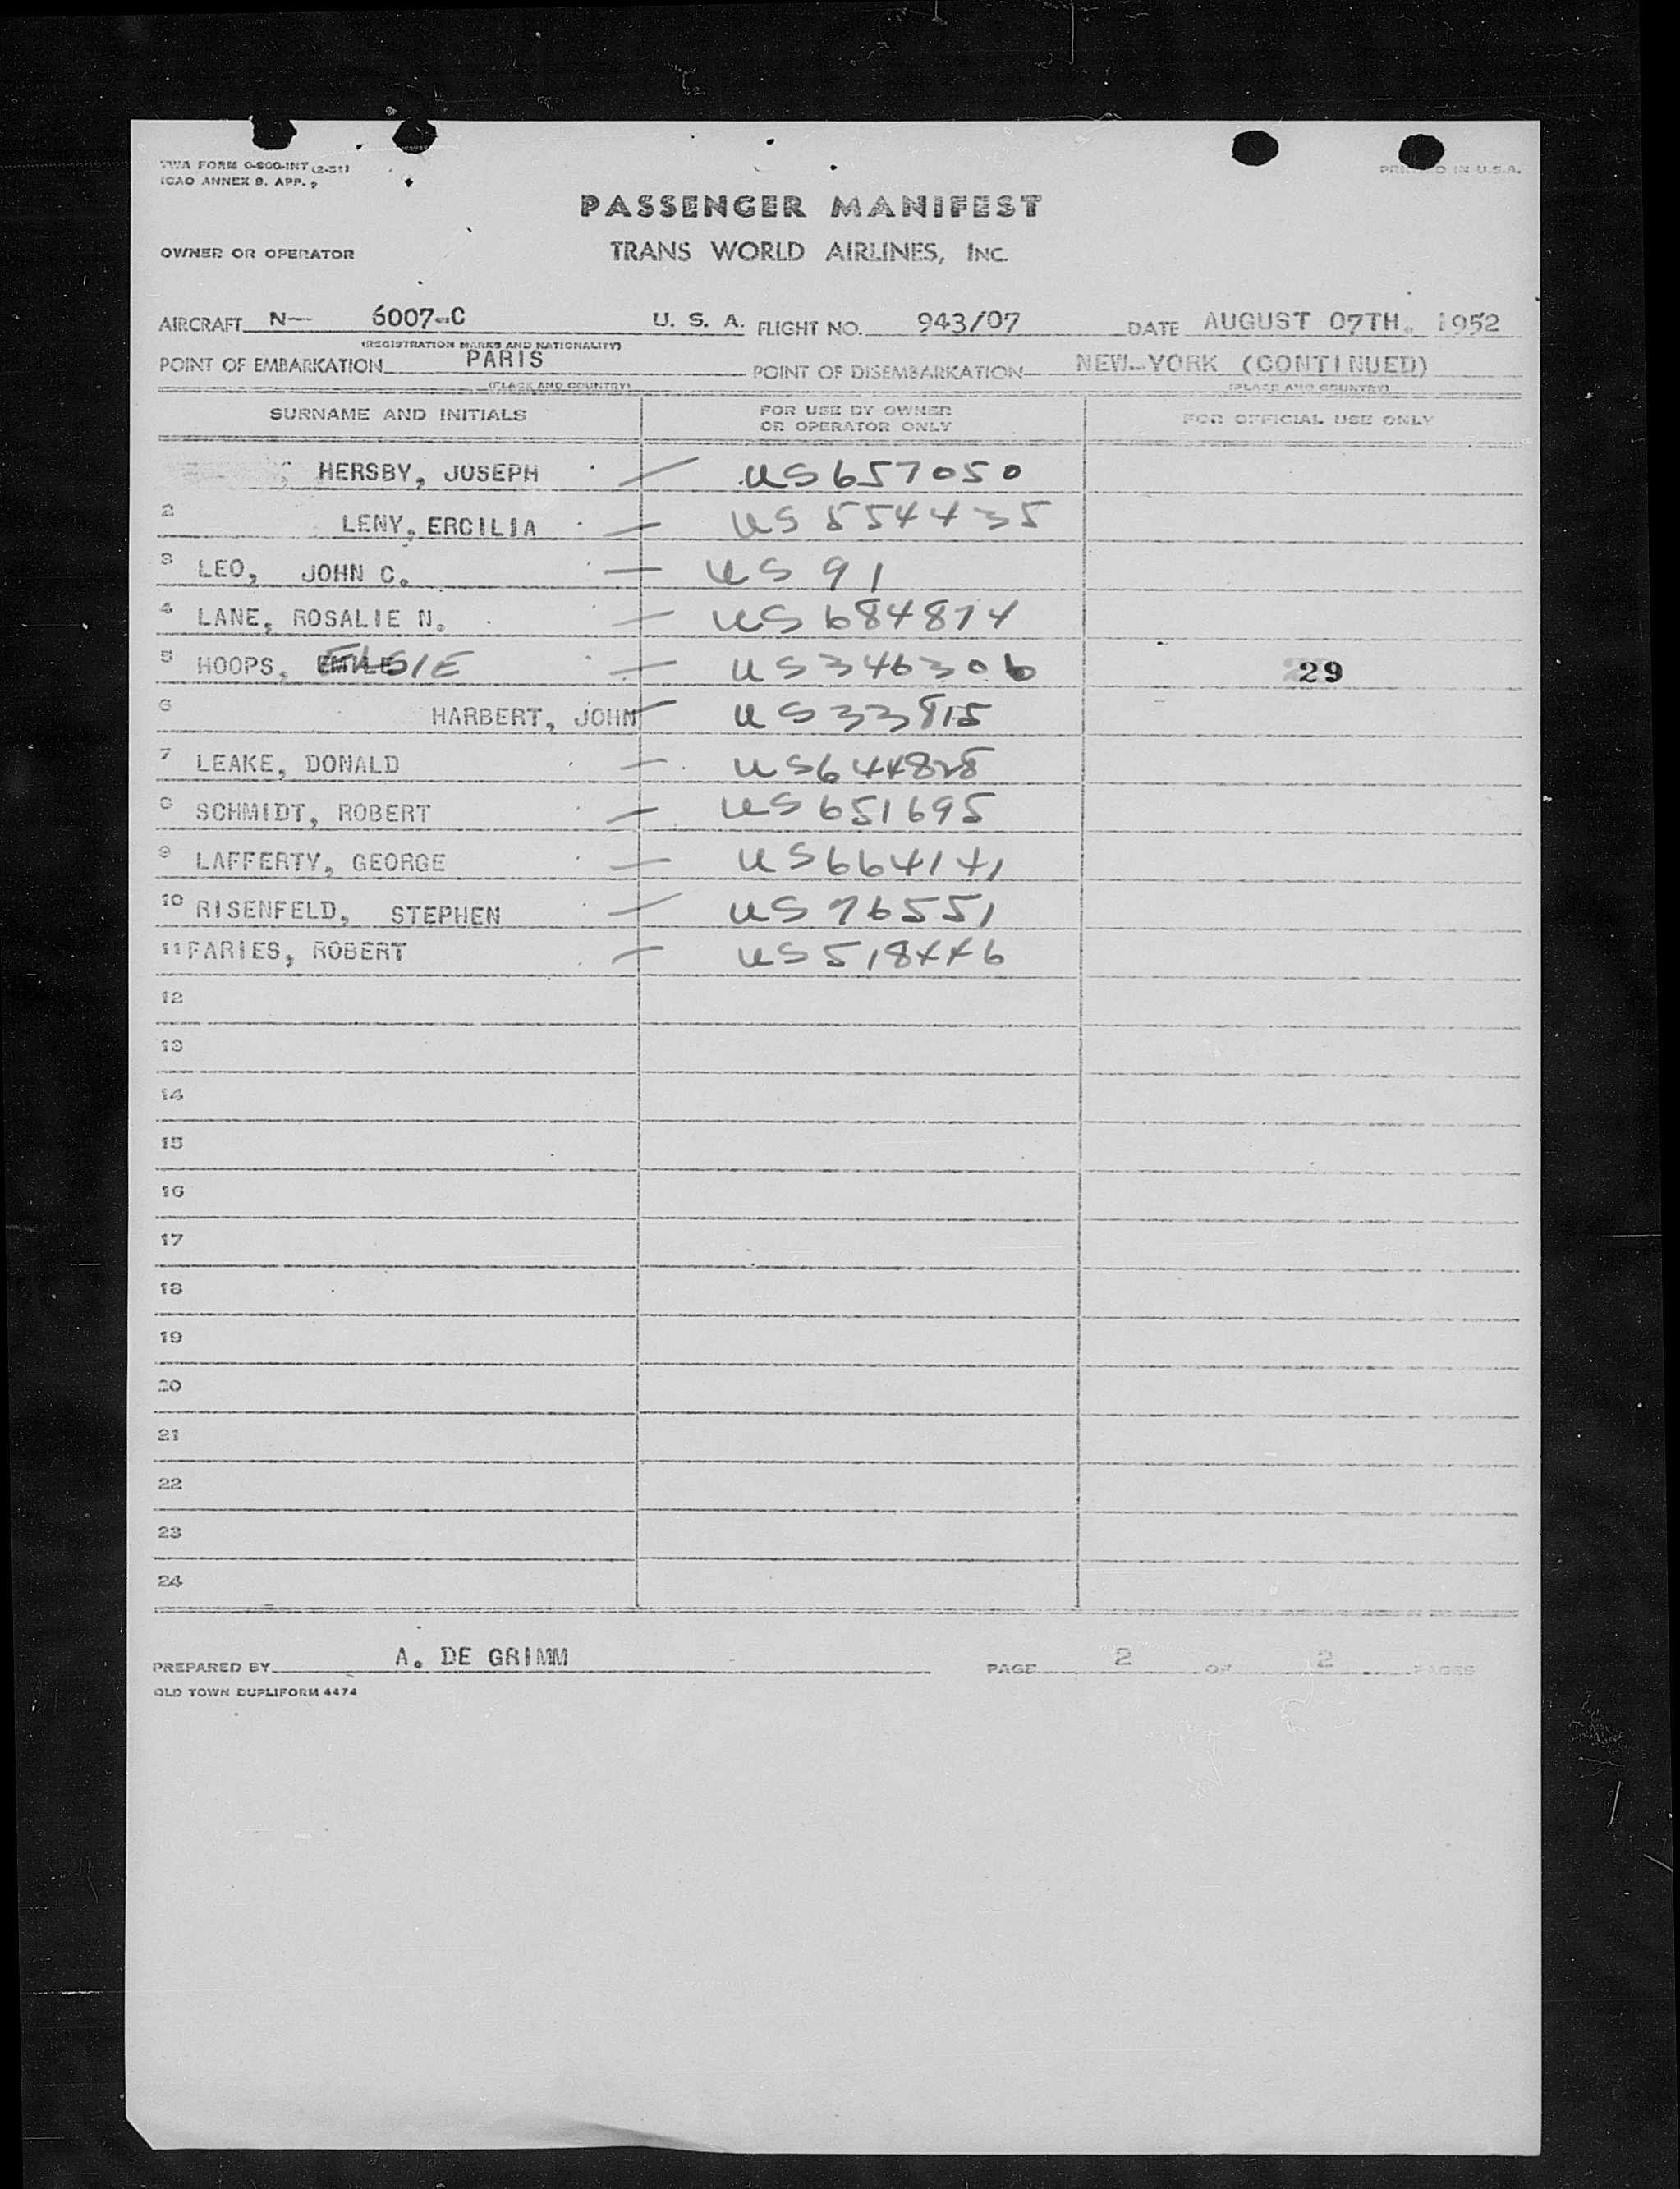 TWA FORM O-800-INT (2-51)
ICAO ANNEX 9. APP.
IN U.S.A.
PASSENGER MANIFEST
OWNER OR OPERATOR TRANS WORLD AIRLINES, INC.
AIRCRAFT N— 6007-C U. S. A. FLIGHT NO. 943/07 DATE AUGUST 07TH. 1952
(REGISTRATION MARKS AND NATIONALITY)
POINT OF EMBARKATION PARIS POINT OF DISEMBARKATION NEW-YORK (CONTINUED)
(PLACE AND COUNTRY) (PLACE AND COUNTRY)
SURNAME AND INITIALS FOR USE BY OWNER OR OPERATOR ONLY FOR OFFICIAL USE ONLY
HERSBY, JOSEPH — US 657050
2 LENY, ERCILIA — US 554435
3 LEO, JOHN C. — US 91
4 LANE, ROSALIE N. — US 684874
5 HOOPS, ELSIE — US 346306 29
6 HARBERT, JOHN — US 33815
7 LEAKE, DONALD — US 644828
8 SCHMIDT, ROBERT — US 651695
9 LAFFERTY, GEORGE — US 664141
10 RISENFELD, STEPHEN — US 76551
11 FARIES, ROBERT — US 518446
12
13
14
15
16
17
18
19
20
21
22
23
24
PREPARED BY A. DE GRIMM PAGE 2 OF 2 PAGES
OLD TOWN DUPLIFORM 4474